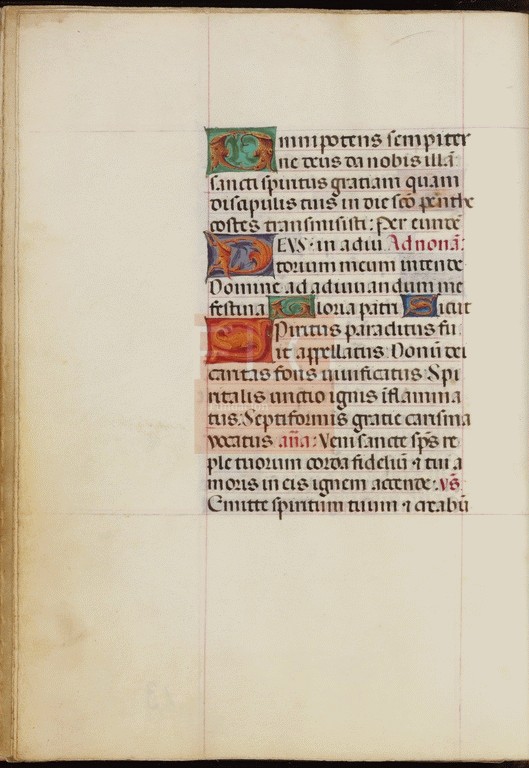 Omnipotens sempiter
ne deus da nobis illā:
sancti spiritus gratiam quam
discipulis tuis in die scō penthe
costes transmisisti: Per eundē
DEVS· in adiu Ad nonā:
torium meum intende·
Domine ad adiuuandum me
festina Gloria patri Sicut
Spiritus paraclitus fu
it appellatus· Donū dei
caritas fons uiuificatus· Spi
ritalis unctio ignis īflamma
tus· Septiformis gratie carisma
vocatus aña: Veni sancte sp̄s re
ple tuorum corda fideliū ⁊ tui a
moris in eis ignem accende· v̄s
Emitte spiritum tuum ⁊ creabū